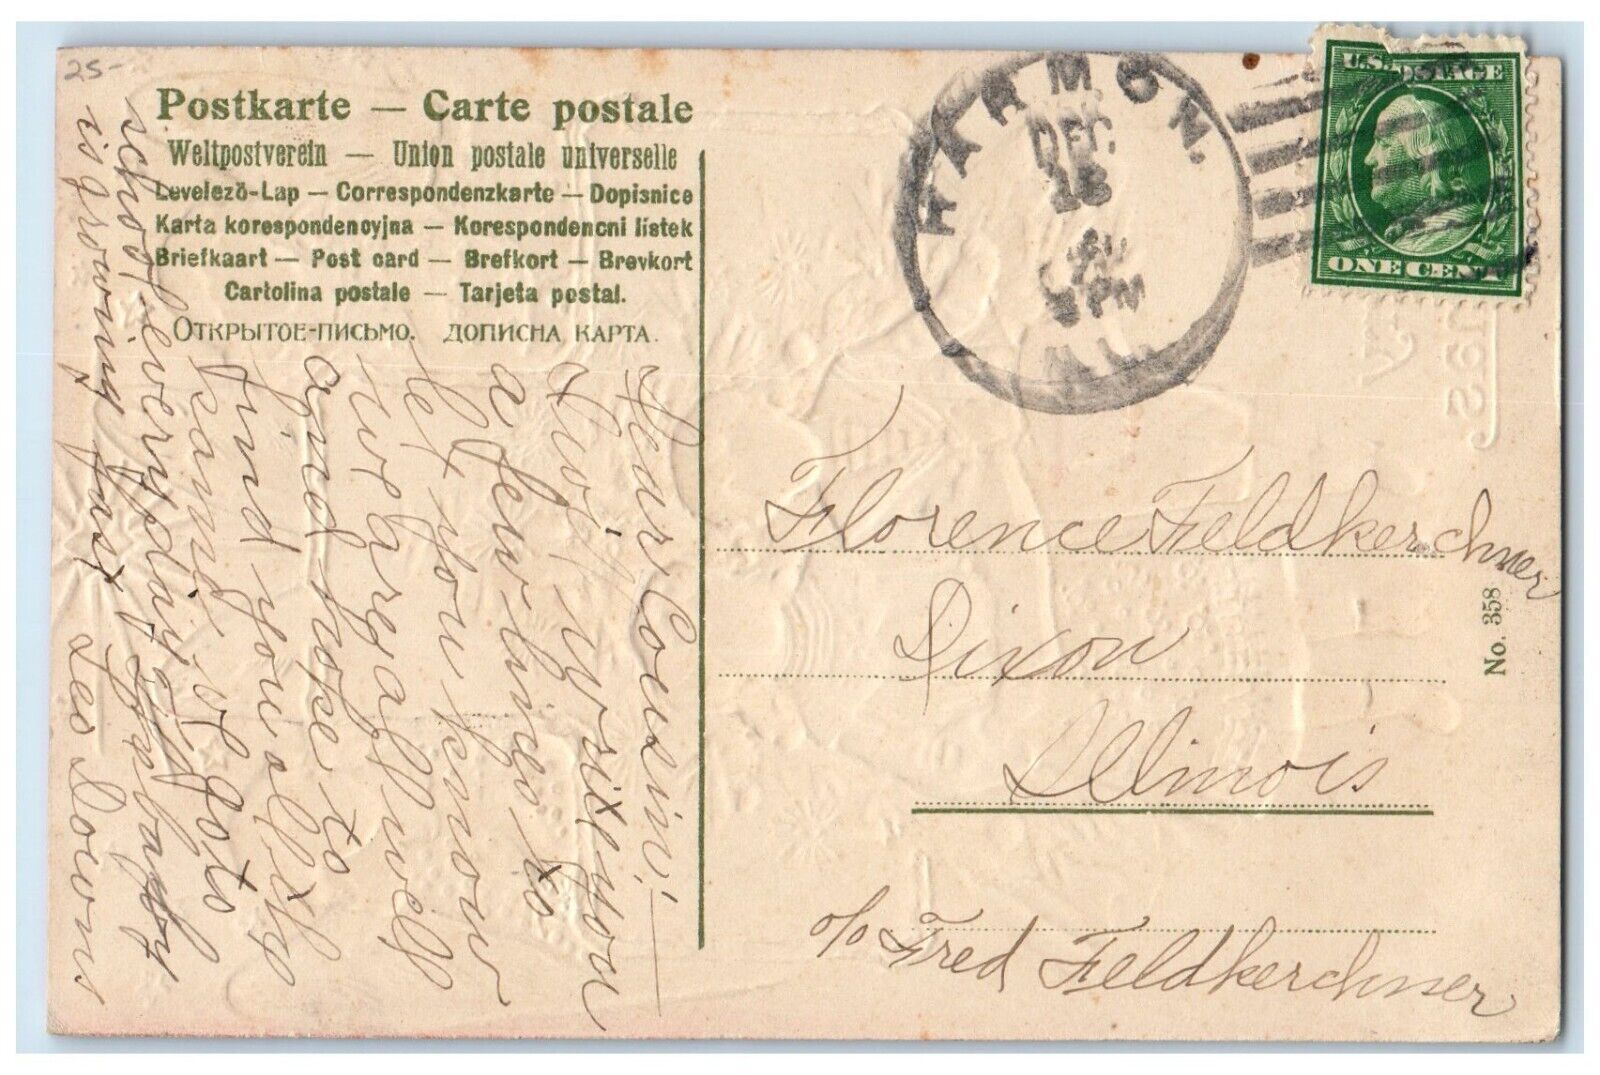 25-
Postkarte — Carte postale
Weltpostverein — Union postale universelle
Levelező-Lap — Correspondenzkarte — Dopisnice
Karta korespondencyjna — Korespondencni listek
Briefkaart — Post card — Brefkort — Brevkort
Cartolina postale — Tarjeta postal.
Открытое-письмо. Дописна карта.
HARMON.
DEC.
3 PM
ILL.
U.S. POSTAGE
ONE CENT
Dear Cousin:
Will write you
a few lines to
let you know
we are all well
and hope to
find you all the
same. I go to
school every day. baby
is growing fast
Leo Downs
Florence Feldkerchner
Dixon
Illinois
c/o Fred Feldkerchner
No. 358